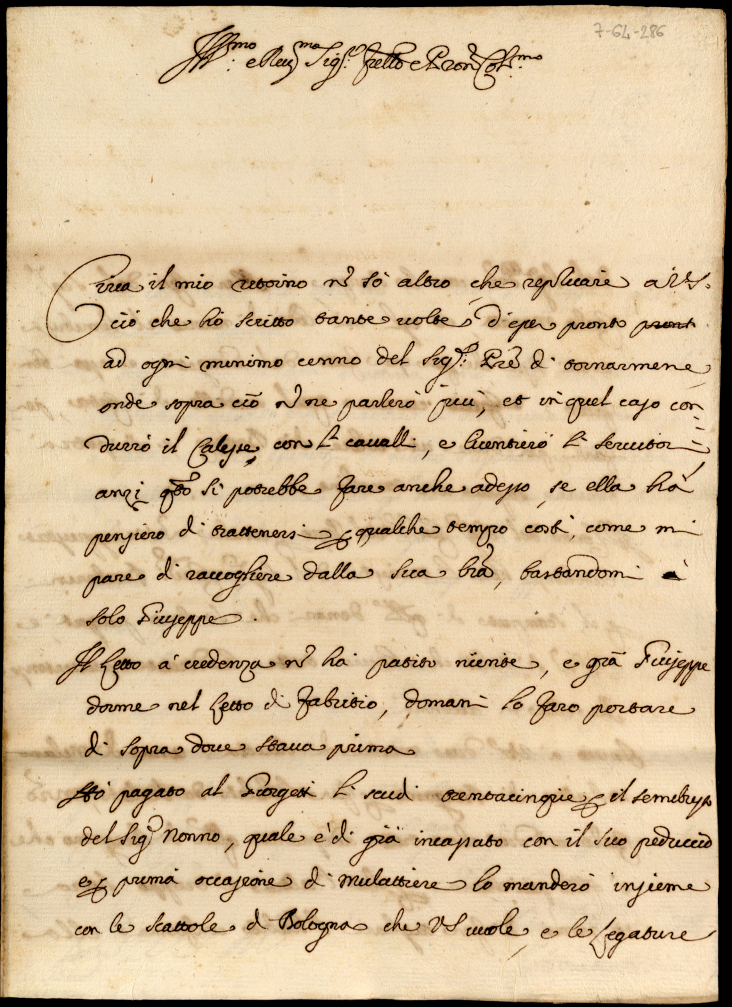 7-64-286
Ill.mo e Reu.mo Sig.r frello e Pron Col.mo
Circa il mio ritorno nõ sò altro che replicare a VS.
ciò che hò scritto tante uolte, d'esser pronto pront
ad ogni minimo cenno del Sig.r Prẽ di tornarmene
onde sopra ciò nõ ne parlerò più, et in quel caso con
durrò il Calesse, con li caualli, e licentierò li seruitori
anzi qto si potrebbe fare anche adesso, se ella hà
pensiero di trattenersi p qualche tempo costi, come mi
pare di raccogliere dalla sua lrã, bastandomi à
solo Giuseppe.
Il Letto à credenza nõ hà patito niente, e già Giuseppe
dorme nel Letto di Fabritio, domani lo farò portare
di sopra doue staua prima
Hò pagato al Giorgetti li scudi trentacinque p il
del Sig.r Nonno, quale è di già incassato con il suo peduccio
e p prima occasione di Mulattiere lo manderò insieme
con le scattole di Bologna che VS uuole, e le Legature